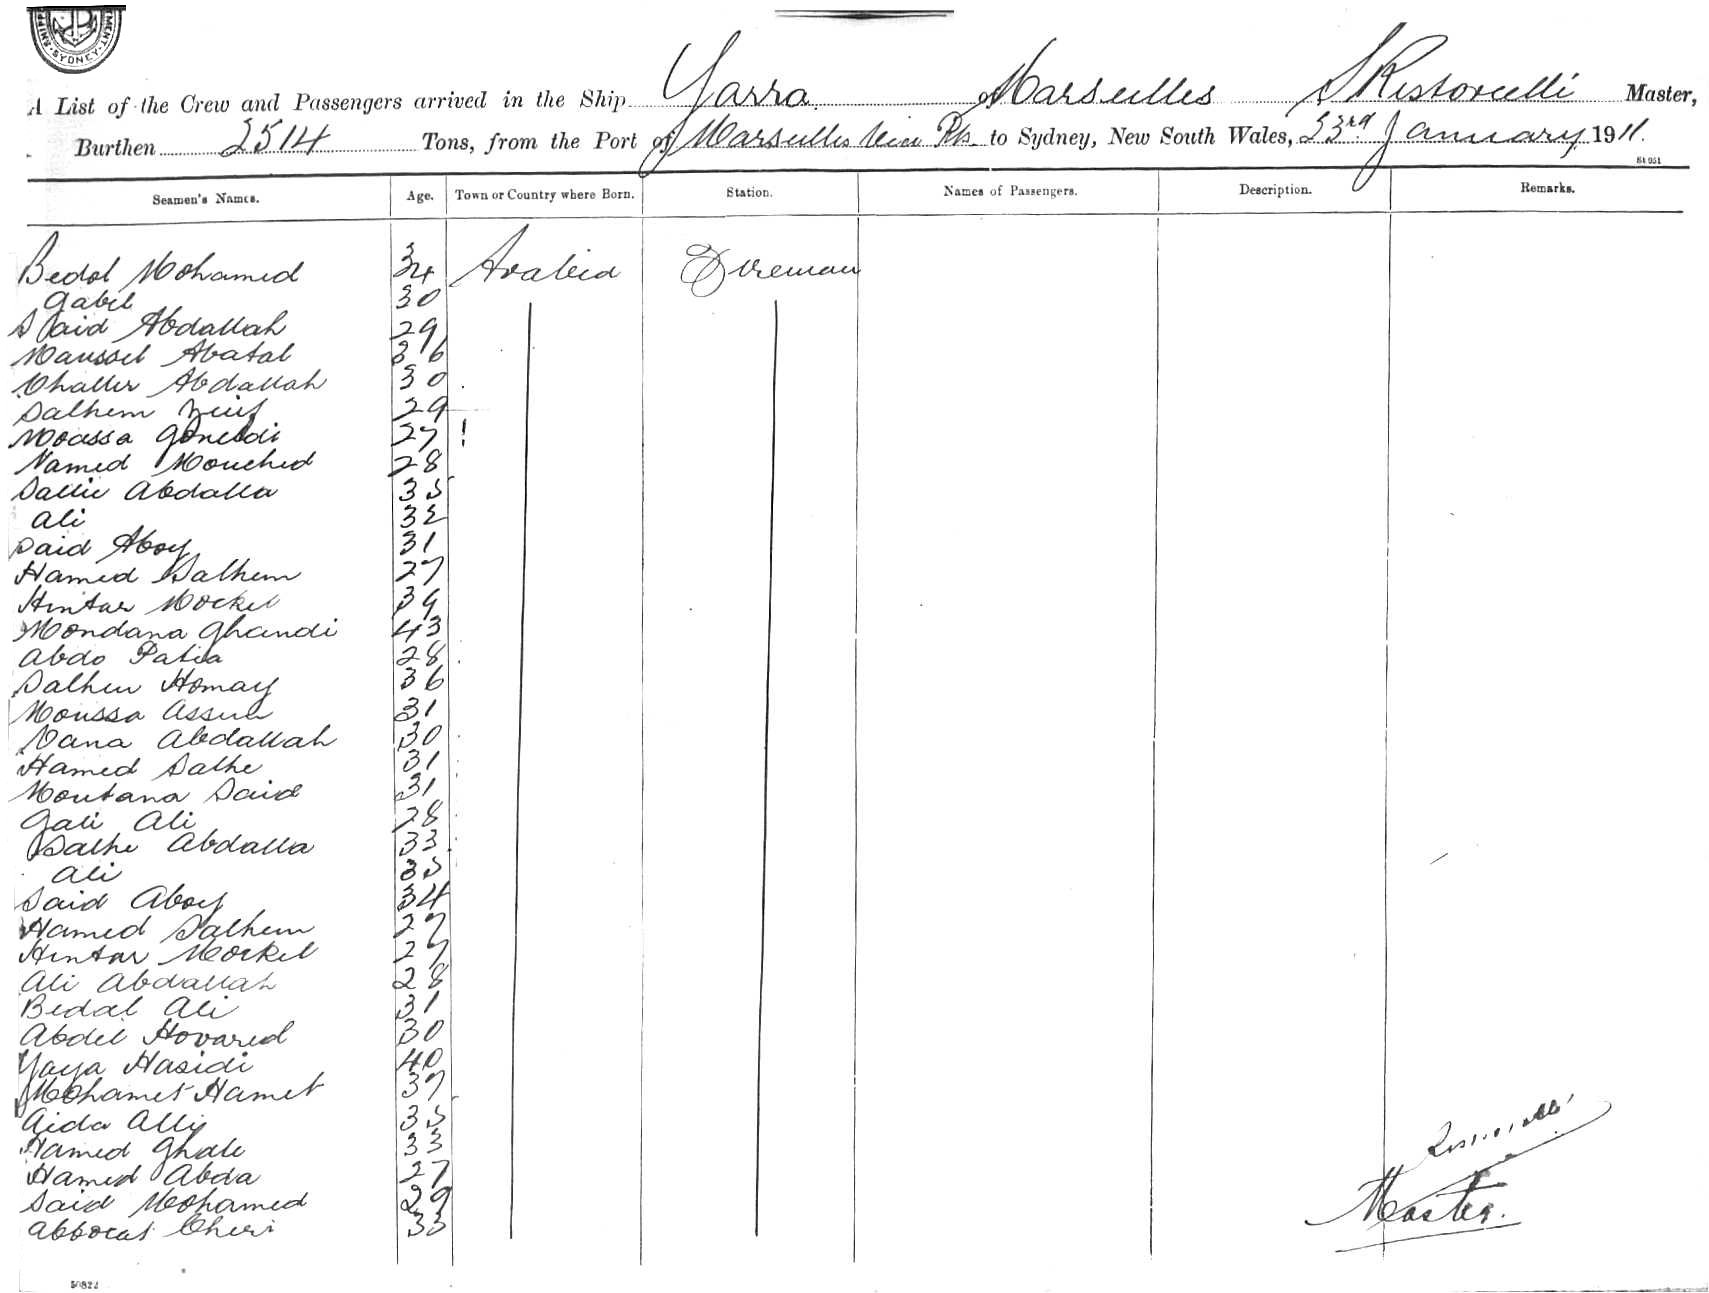 SYDNEY
A List of the Crew and Passengers arrived in the Ship Yarra of Marseilles S Ristorcelli Master,
Burthen 2514 Tons, from the Port of Marseilles via Pts to Sydney, New South Wales, 23rd January 1911.
Seamen's Names. Age. Town or Country where Born. Station. Names of Passengers. Description. Remarks.
Bedol Mohamed 34 Arabia Fireman
Gabil 30
Said Abdallah 29
Maussel Abatal 36
Challer Abdallah 30
Salhem 29
Moussa 27
Named Mouched 28
Sallie Abdalla 35
Ali 32
Said Aboy 31
Hamed Salhem 27
Hintar Mockel 39
Mondana Ghandi 43
Abdo Patia 28
Salhem Homay 36
Moussa Assua 31
Vana Abdallah 30
Hamed Salhe 31
Moutana Said 31
Gali Ali 28
Salhe Abdalla 33
Ali 35
Said Aboy 34
Hamed Salhem 27
Hintar Mockel 27
Ali Abdallah 28
Bedal Ali 31
Abdel Hovared 30
Yaya Hasidi 40
Mohamet Hamet 37
Aida Alli 35
Hamed Ghale 33
Hamed Abda 27
Said Mohamed 29
Abbocat Cheri 33
Master.